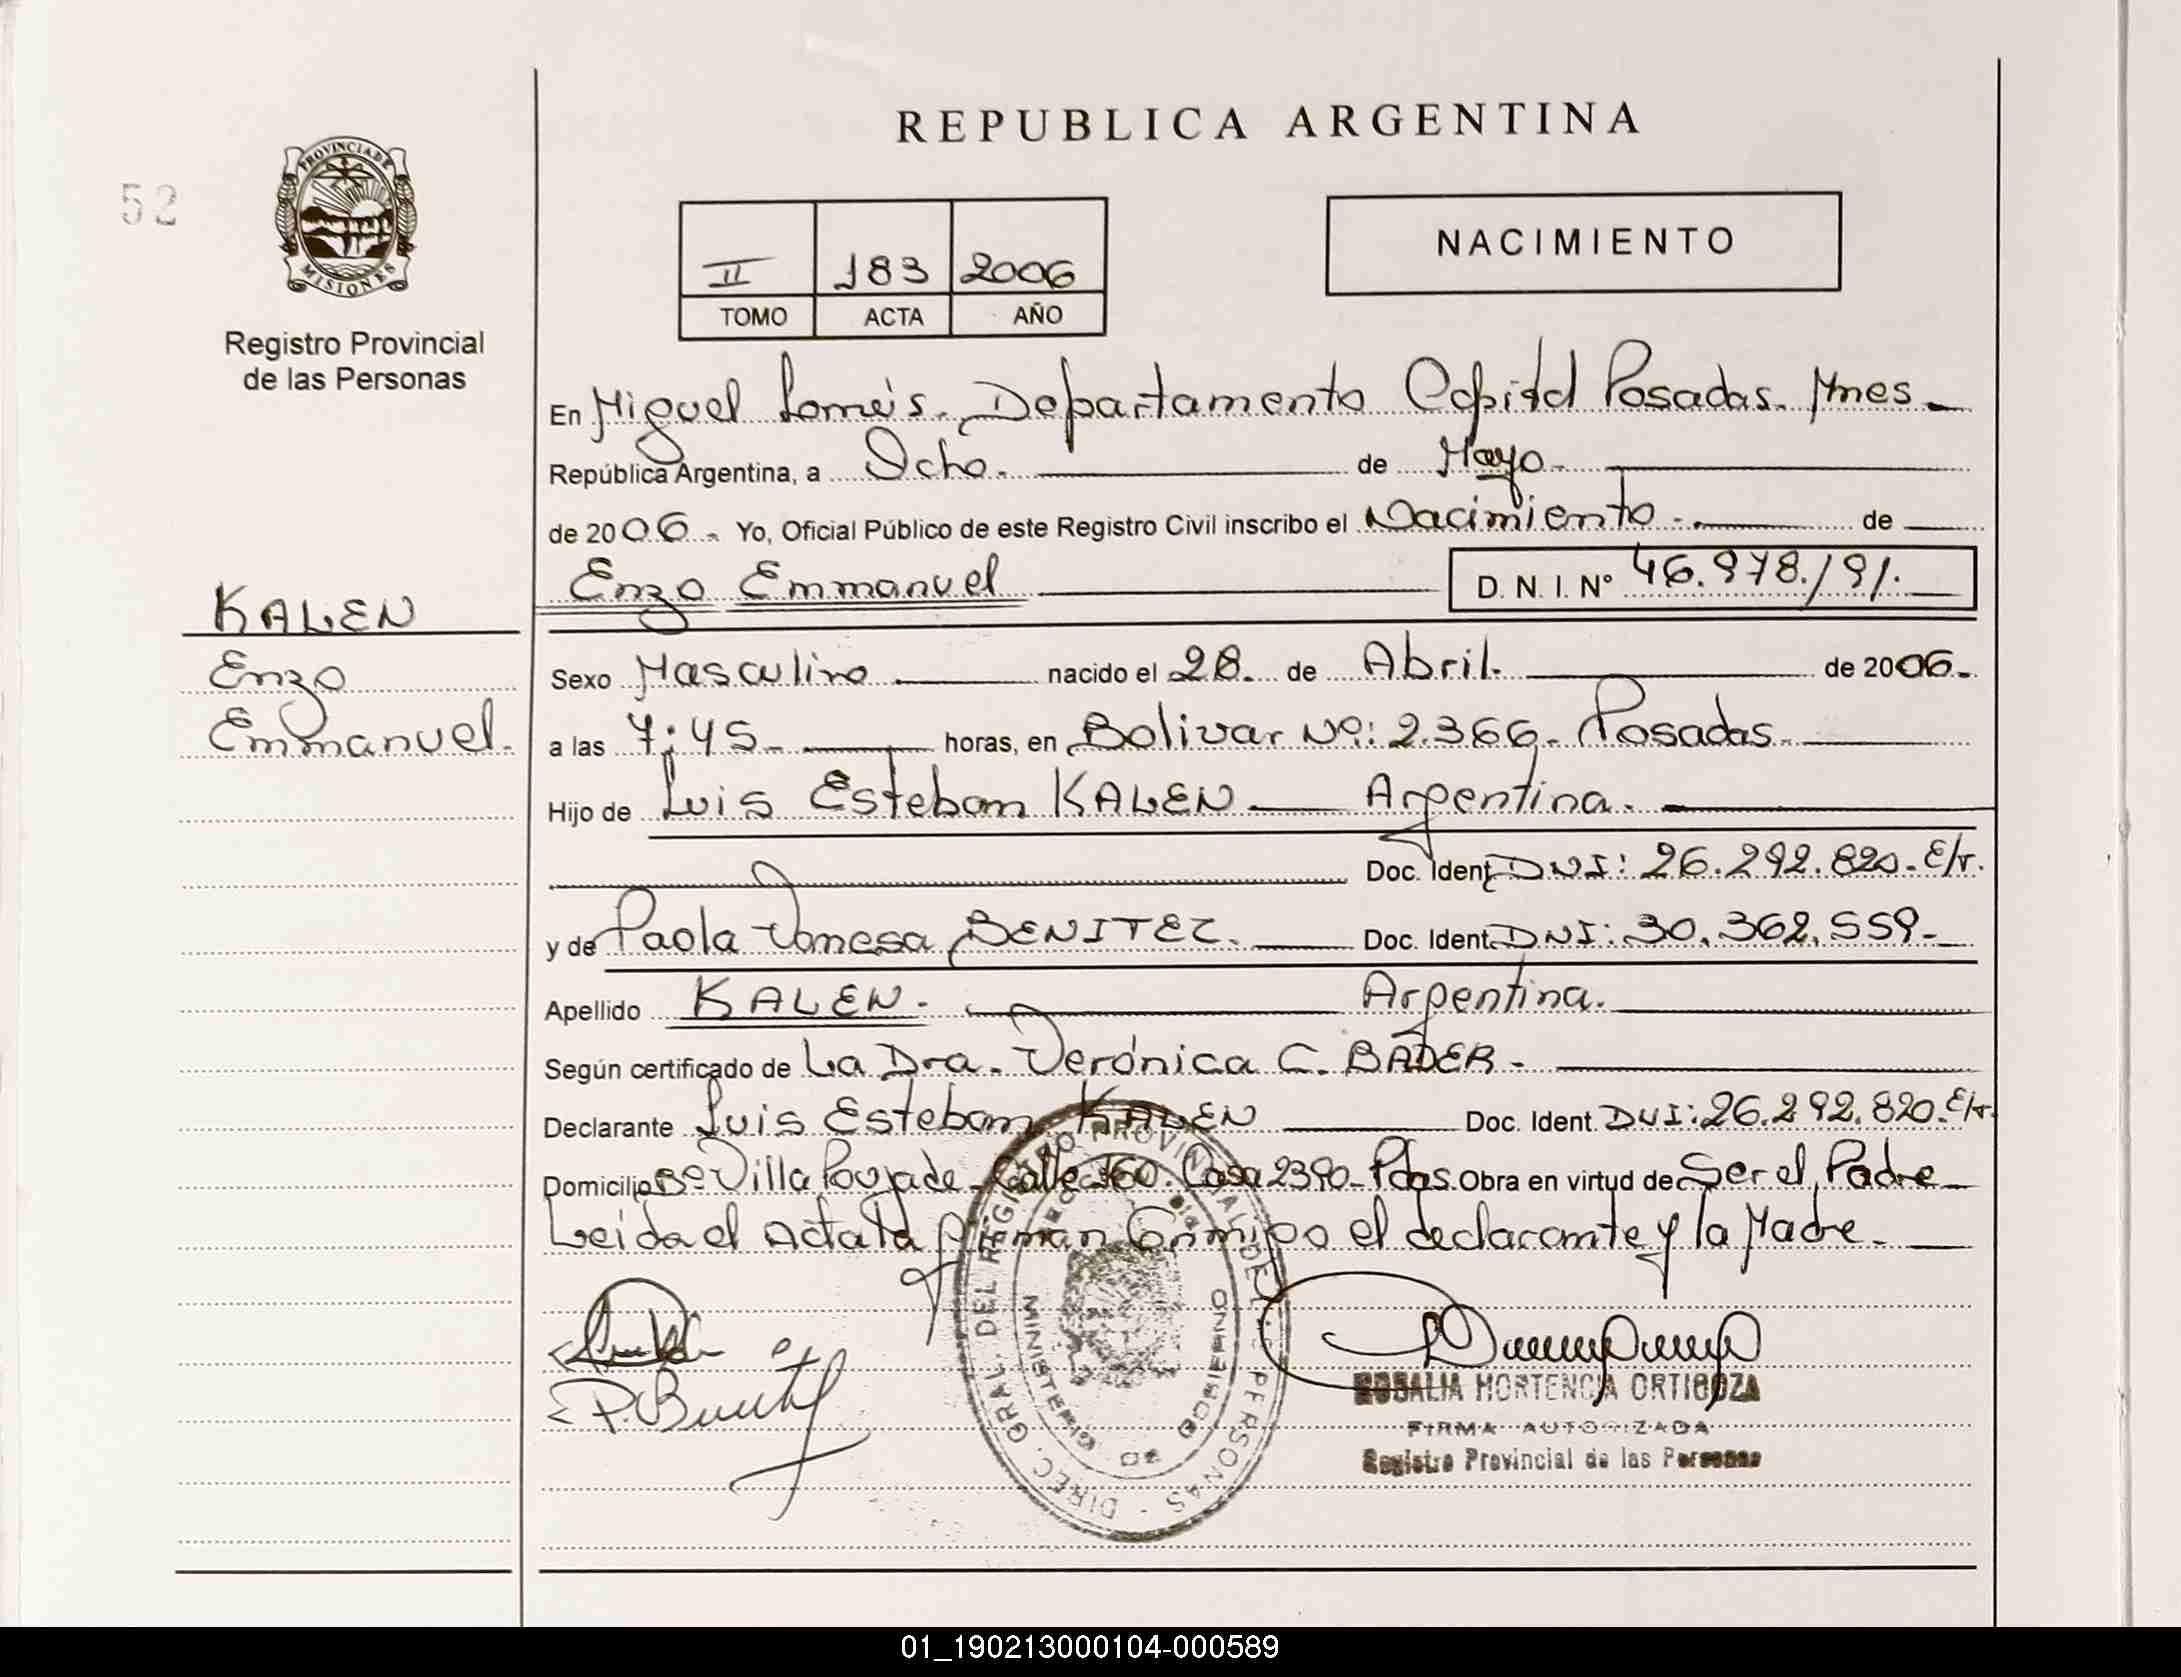 REPUBLICA ARGENTINA
52
PROVINCIA DE
MISIONES
Registro Provincial
de las Personas
II 183 2006
TOMO ACTA AÑO
NACIMIENTO
En Miguel Lomeis. Departamento Capital Posadas. Mnes
República Argentina, a Ocho. de Mayo
de 2006. Yo, Oficial Público de este Registro Civil inscribo el Nacimiento de
Enzo Emmanuel D. N. I. Nº 46.978.191.
KALEN
Enzo
Emmanuel.
Sexo Masculino nacido el 28. de Abril. de 2006.
a las 7:45 horas, en Bolivar Nº: 2.366. Posadas.
Hijo de Luis Esteban KALEN Argentina.
Doc. Ident. DNI: 26.292.820. E/r.
y de Paola Vanesa BENITEZ. Doc. Ident. DNI: 30.362.559.
Apellido KALEN. Argentina.
Según certificado de La Dra. Verónica C. BADER.
Declarante Luis Esteban KALEN Doc. Ident. DNI: 26.292.820. E/r.
Domicilio Bº Villa Poujade. Calle 160. Casa 2390. Pdas. Obra en virtud de Ser el Padre
Leida el Acta la Firman Conmigo el declarante y la Madre.
DIREC. GRAL. DEL REGISTRO PROVINCIAL DE LAS PERSONAS
MINISTERIO DE GOBIERNO
P. Benitez
ROSALIA HORTENCIA ORTIGOZA
FIRMA AUTORIZADA
Registro Provincial de las Personas
01_190213000104-000589